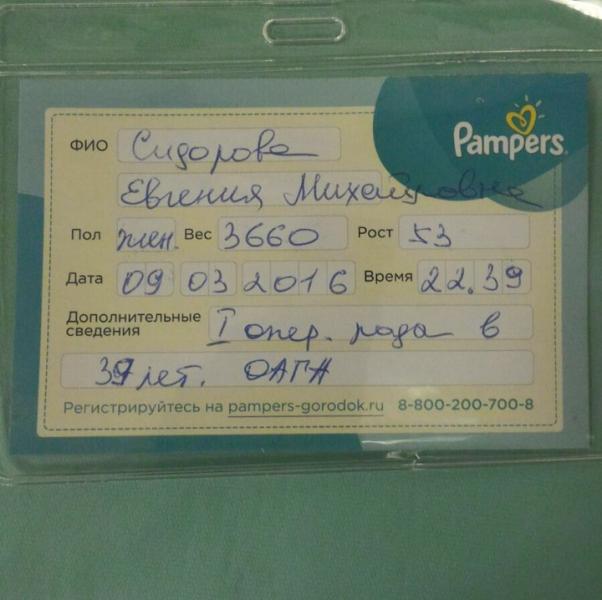 Pampers
ФИО Сидорова
Евгения Михайловна
Пол жен. Вес 3660 Рост 53
Дата 09 03 2016 Время 22.39
Дополнительные сведения I опер. рода в
39 лет. ОАГА
Регистрируйтесь на pampers-gorodok.ru 8-800-200-700-8